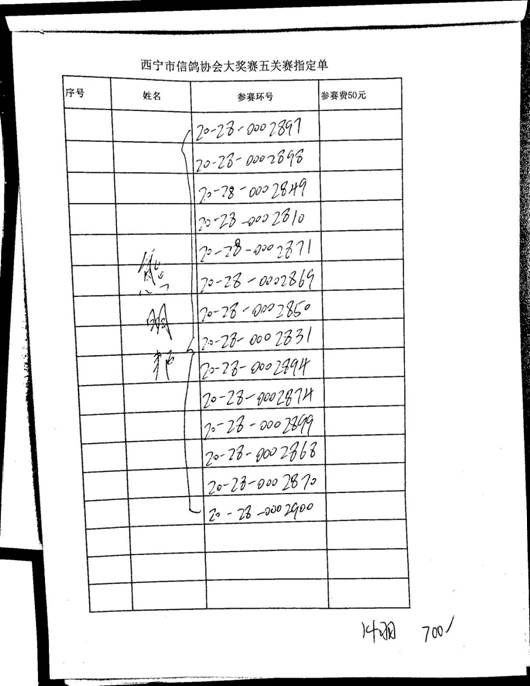 西宁市信鸽协会大奖赛五关赛指定单
序号 姓名 参赛环号 参赛费50元
20-28-0002897
20-28-0002898
20-28-0002849
20-28-0002810
20-28-0002871
20-28-0002869
20-28-0002850
20-28-0002831
20-28-0002894
20-28-0002874
20-28-0002899
20-28-0002868
20-28-0002870
20-28-0002900
14羽 700/